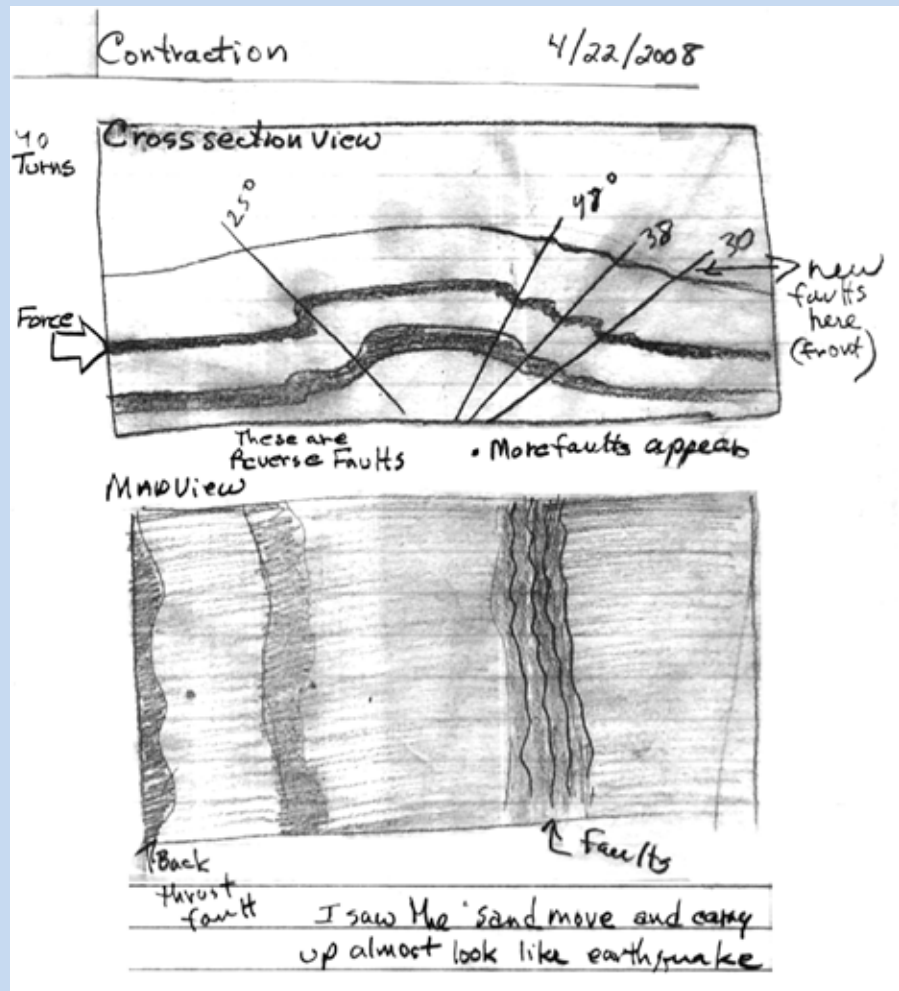 Contraction
4/22/2008
40
Turns
Cross section view
25°
48°
38
30
new
faults
here
(front)
Force
These are
Reverse Faults
• More faults appears
Map View
Back
thrust
fault
Faults
I saw the sand move and carry
up almost look like earthquake